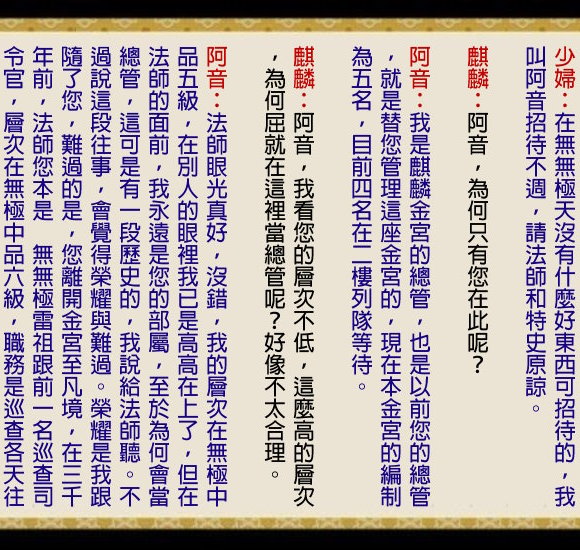 少婦：在無無極天沒有什麼好東西可招待的，我
叫阿音招待不週，請法師和特史原諒。
麒麟：阿音，為何只有您在此呢？
阿音：我是麒麟金宮的總管，也是以前您的總管
，就是替您管理這座金宮的，現在本金宮的編制
為五名，目前四名在二樓列隊等待。
麒麟：阿音，我看您的層次不低，這麼高的層次
，為何屈就在這裡當總管呢？好像不太合理。
阿音：法師眼光真好，沒錯，我的層次在無極中
品五級，在別人的眼裡我已是高高在上了，但在
法師的面前，我永遠是您的部屬，至於為何會當
總管，這可是有一段歷史的，我說給法師聽。不
過說這段往事，會覺得榮耀與難過。榮耀是我跟
隨了您，難過的是，您離開金宮至凡境，在三千
年前，法師您本是　無無極雷祖跟前一名巡查司
令官，層次在無極中品六級，職務是巡查各天往